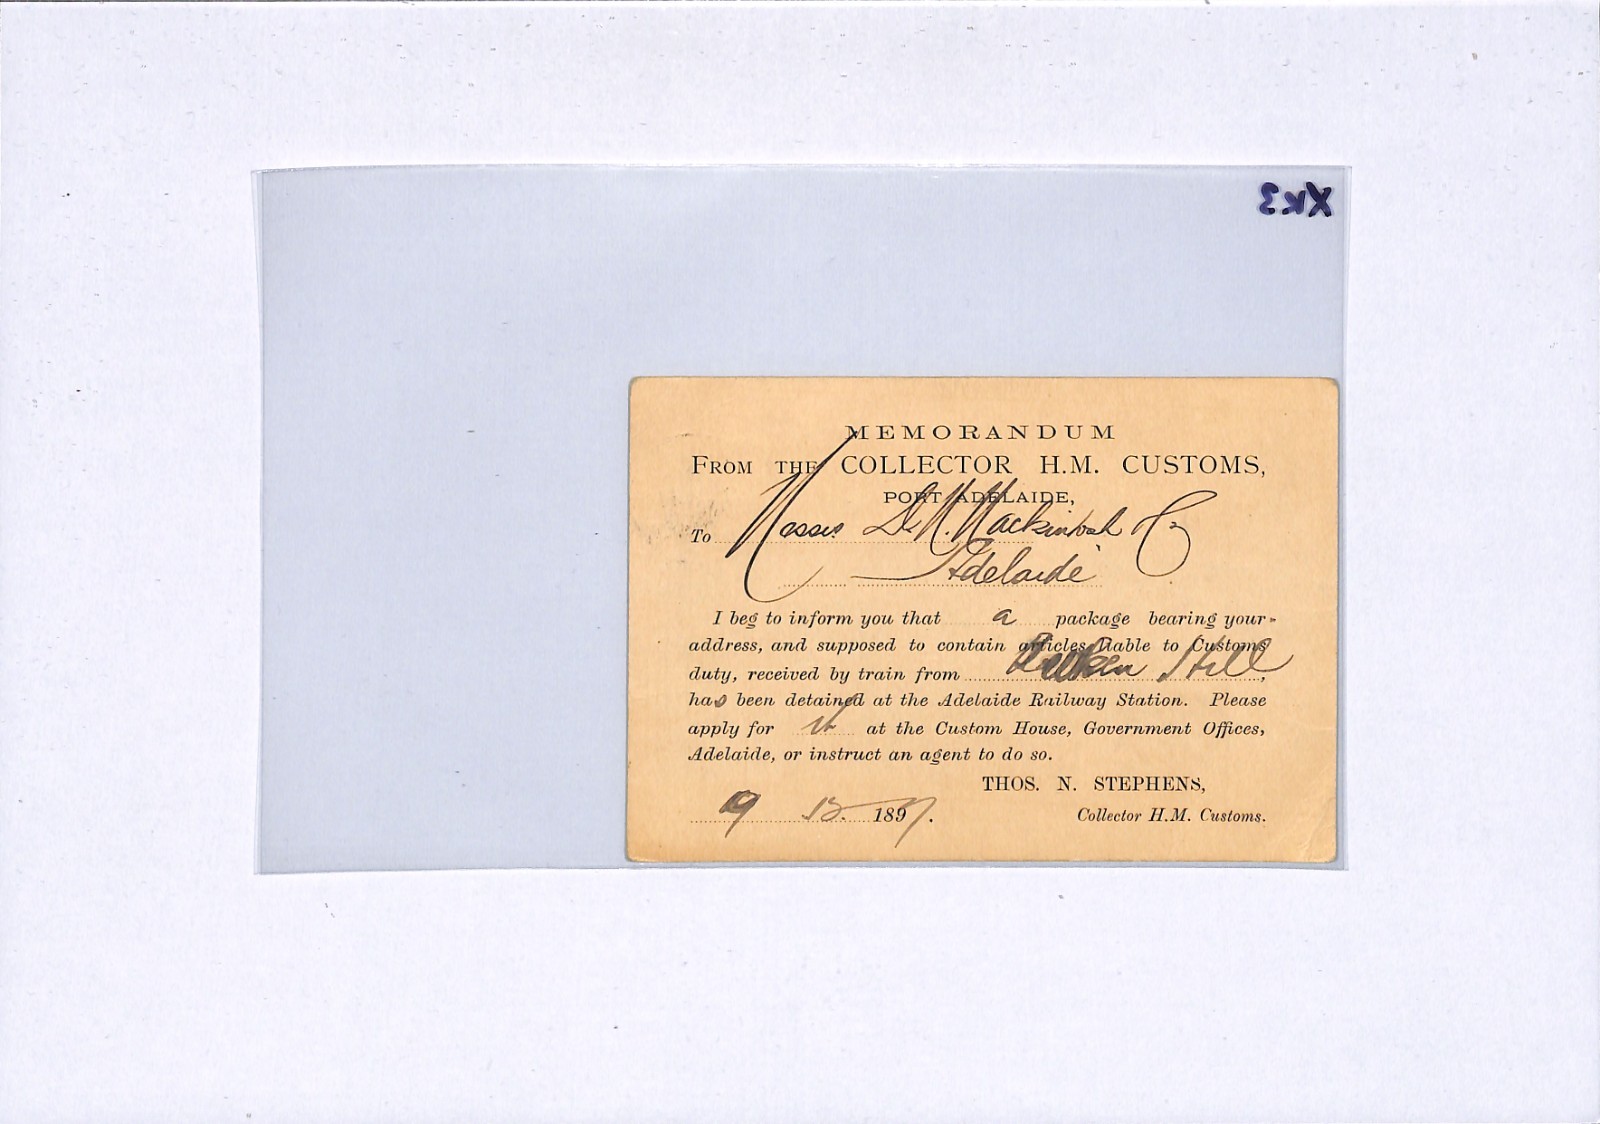 XK3
MEMORANDUM
FROM THE COLLECTOR H.M. CUSTOMS,
PORT ADELAIDE,
To Messrs. D. M. Mackintosh & Co
Adelaide
I beg to inform you that a package bearing your
address, and supposed to contain articles liable to Customs
duty, received by train from Broken Hill,
has been detained at the Adelaide Railway Station. Please
apply for it at the Custom House, Government Offices,
Adelaide, or instruct an agent to do so.
THOS. N. STEPHENS,
1897. Collector H.M. Customs.